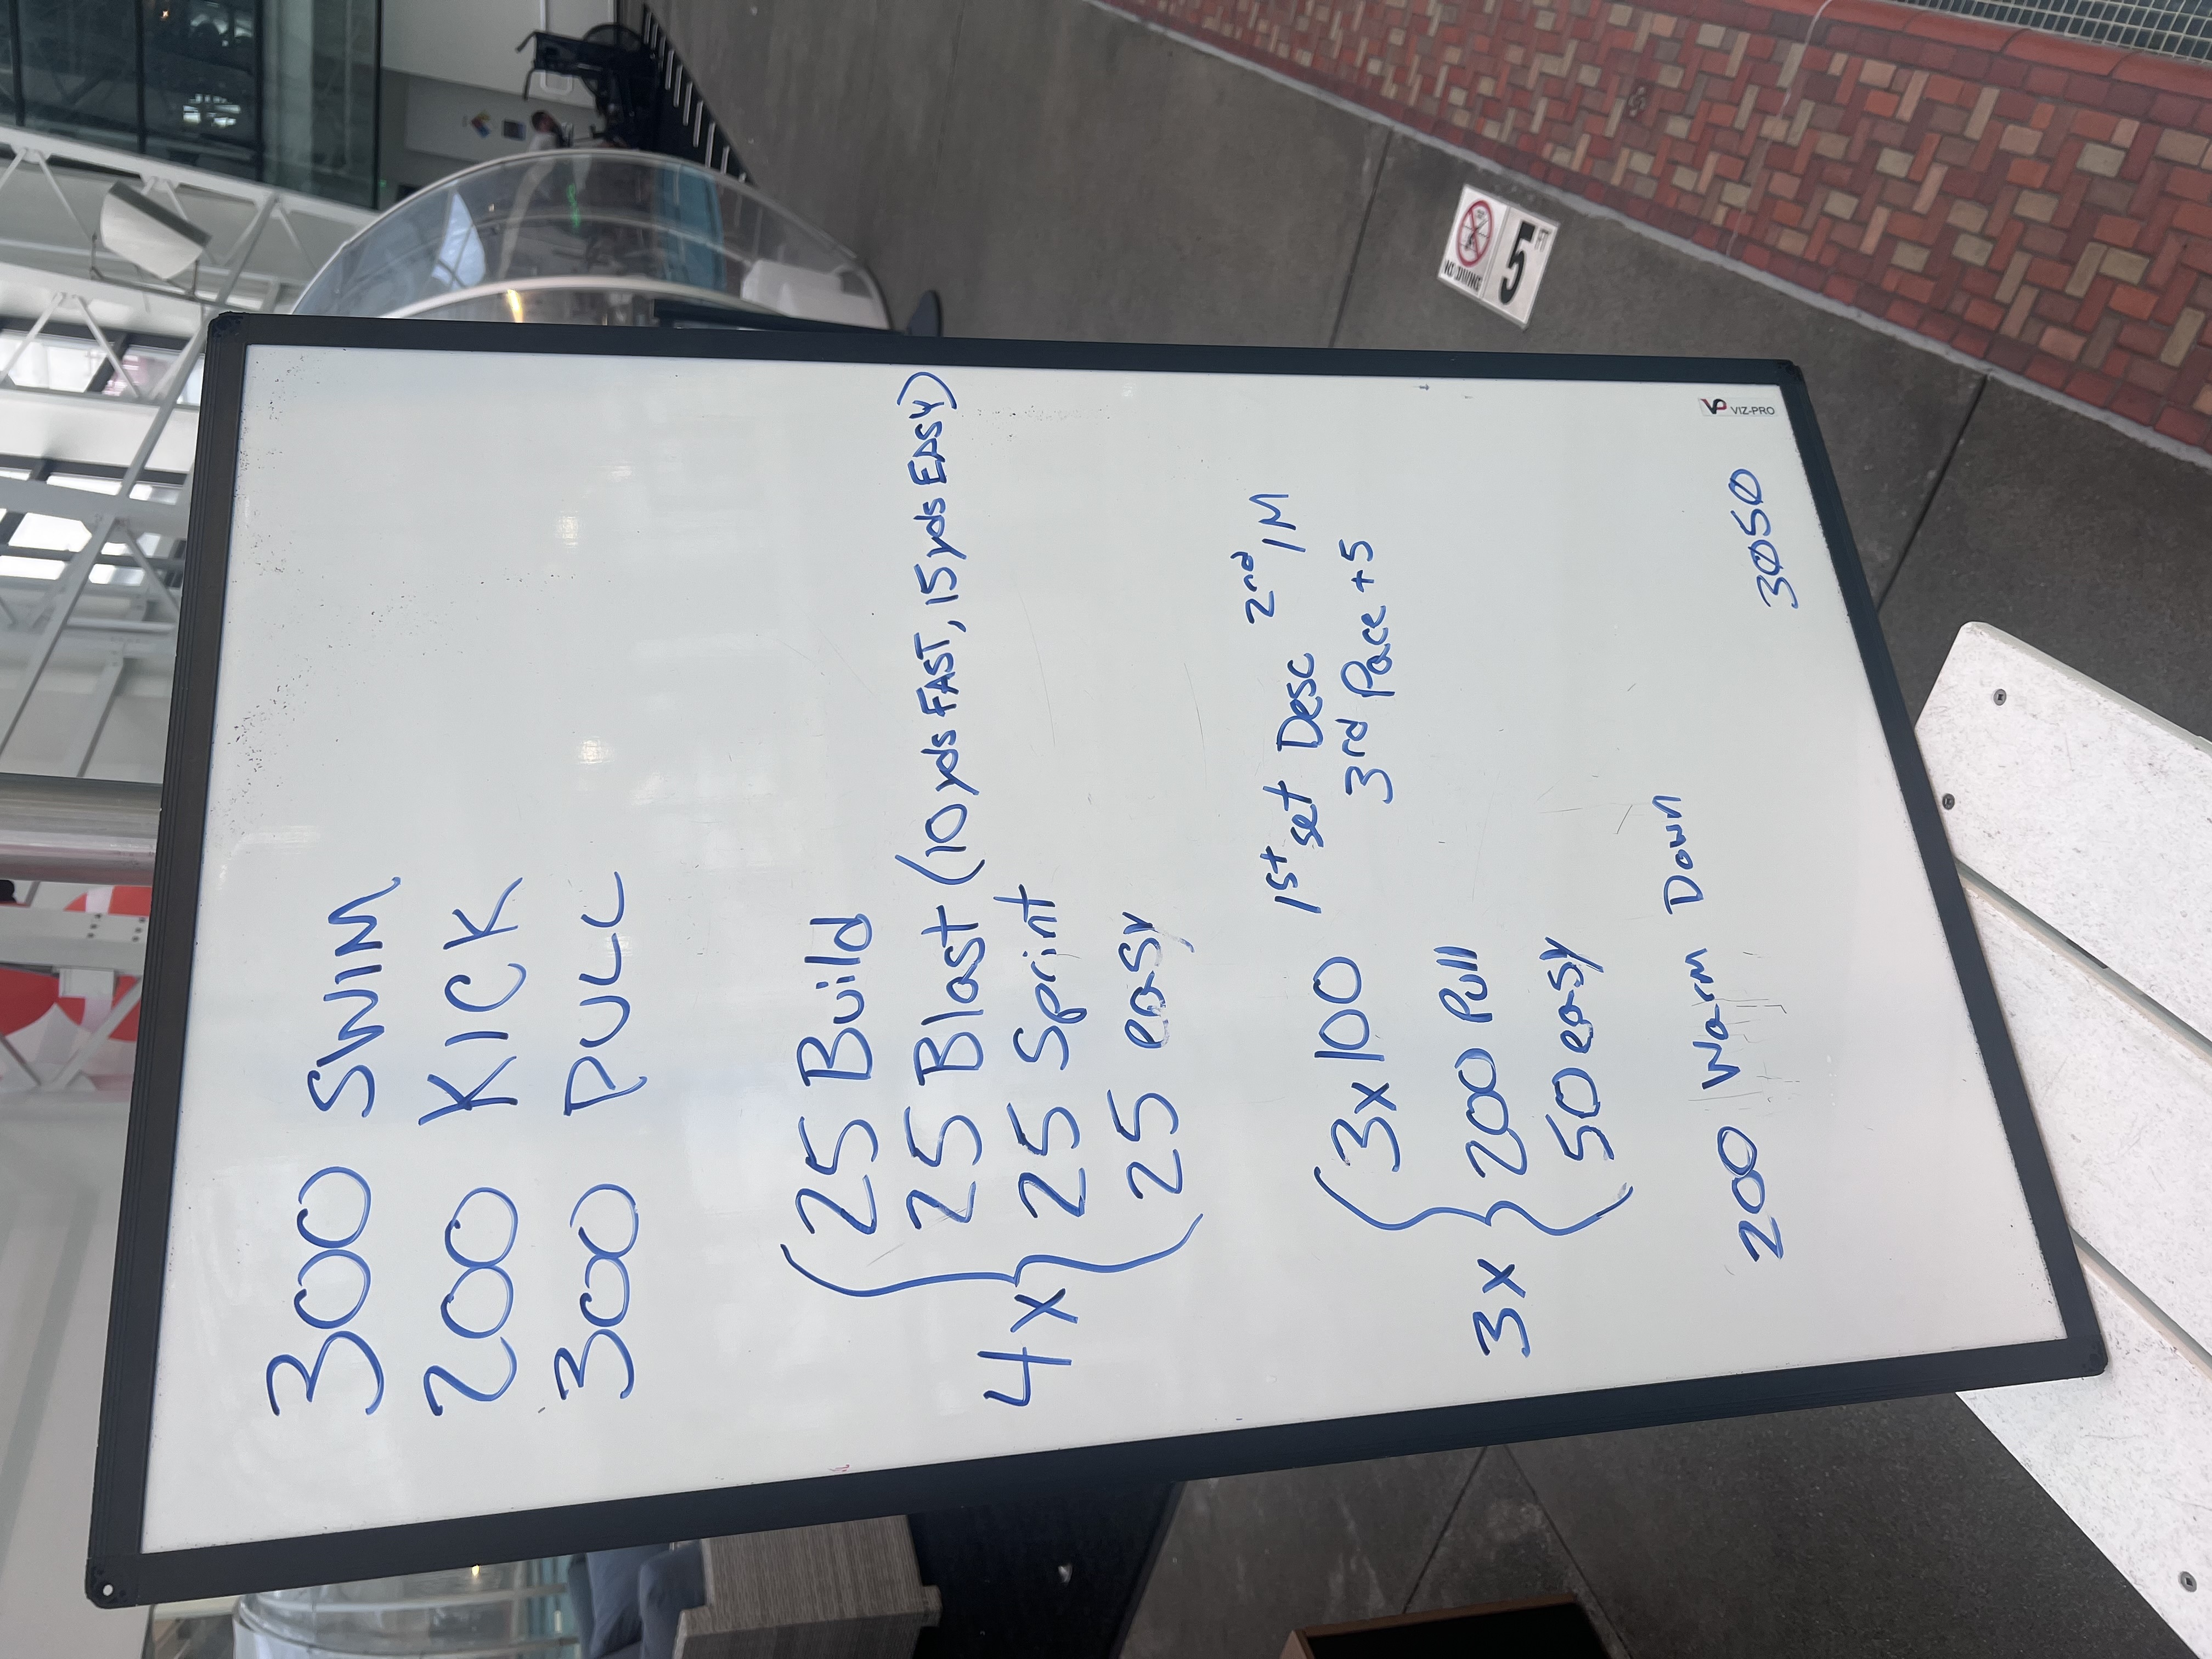 300 SWIM
200 KICK
300 PULL
4x
25 Build
25 Blast (10 yds FAST, 15 yds EASY)
25 Sprint
25 easy
3x
3x100 1st set Desc 2nd IM
3rd Pace +5
200 Pull
50 easy
200 Warm Down
3050
VP VIZ-PRO
NO DIVING
5 FT